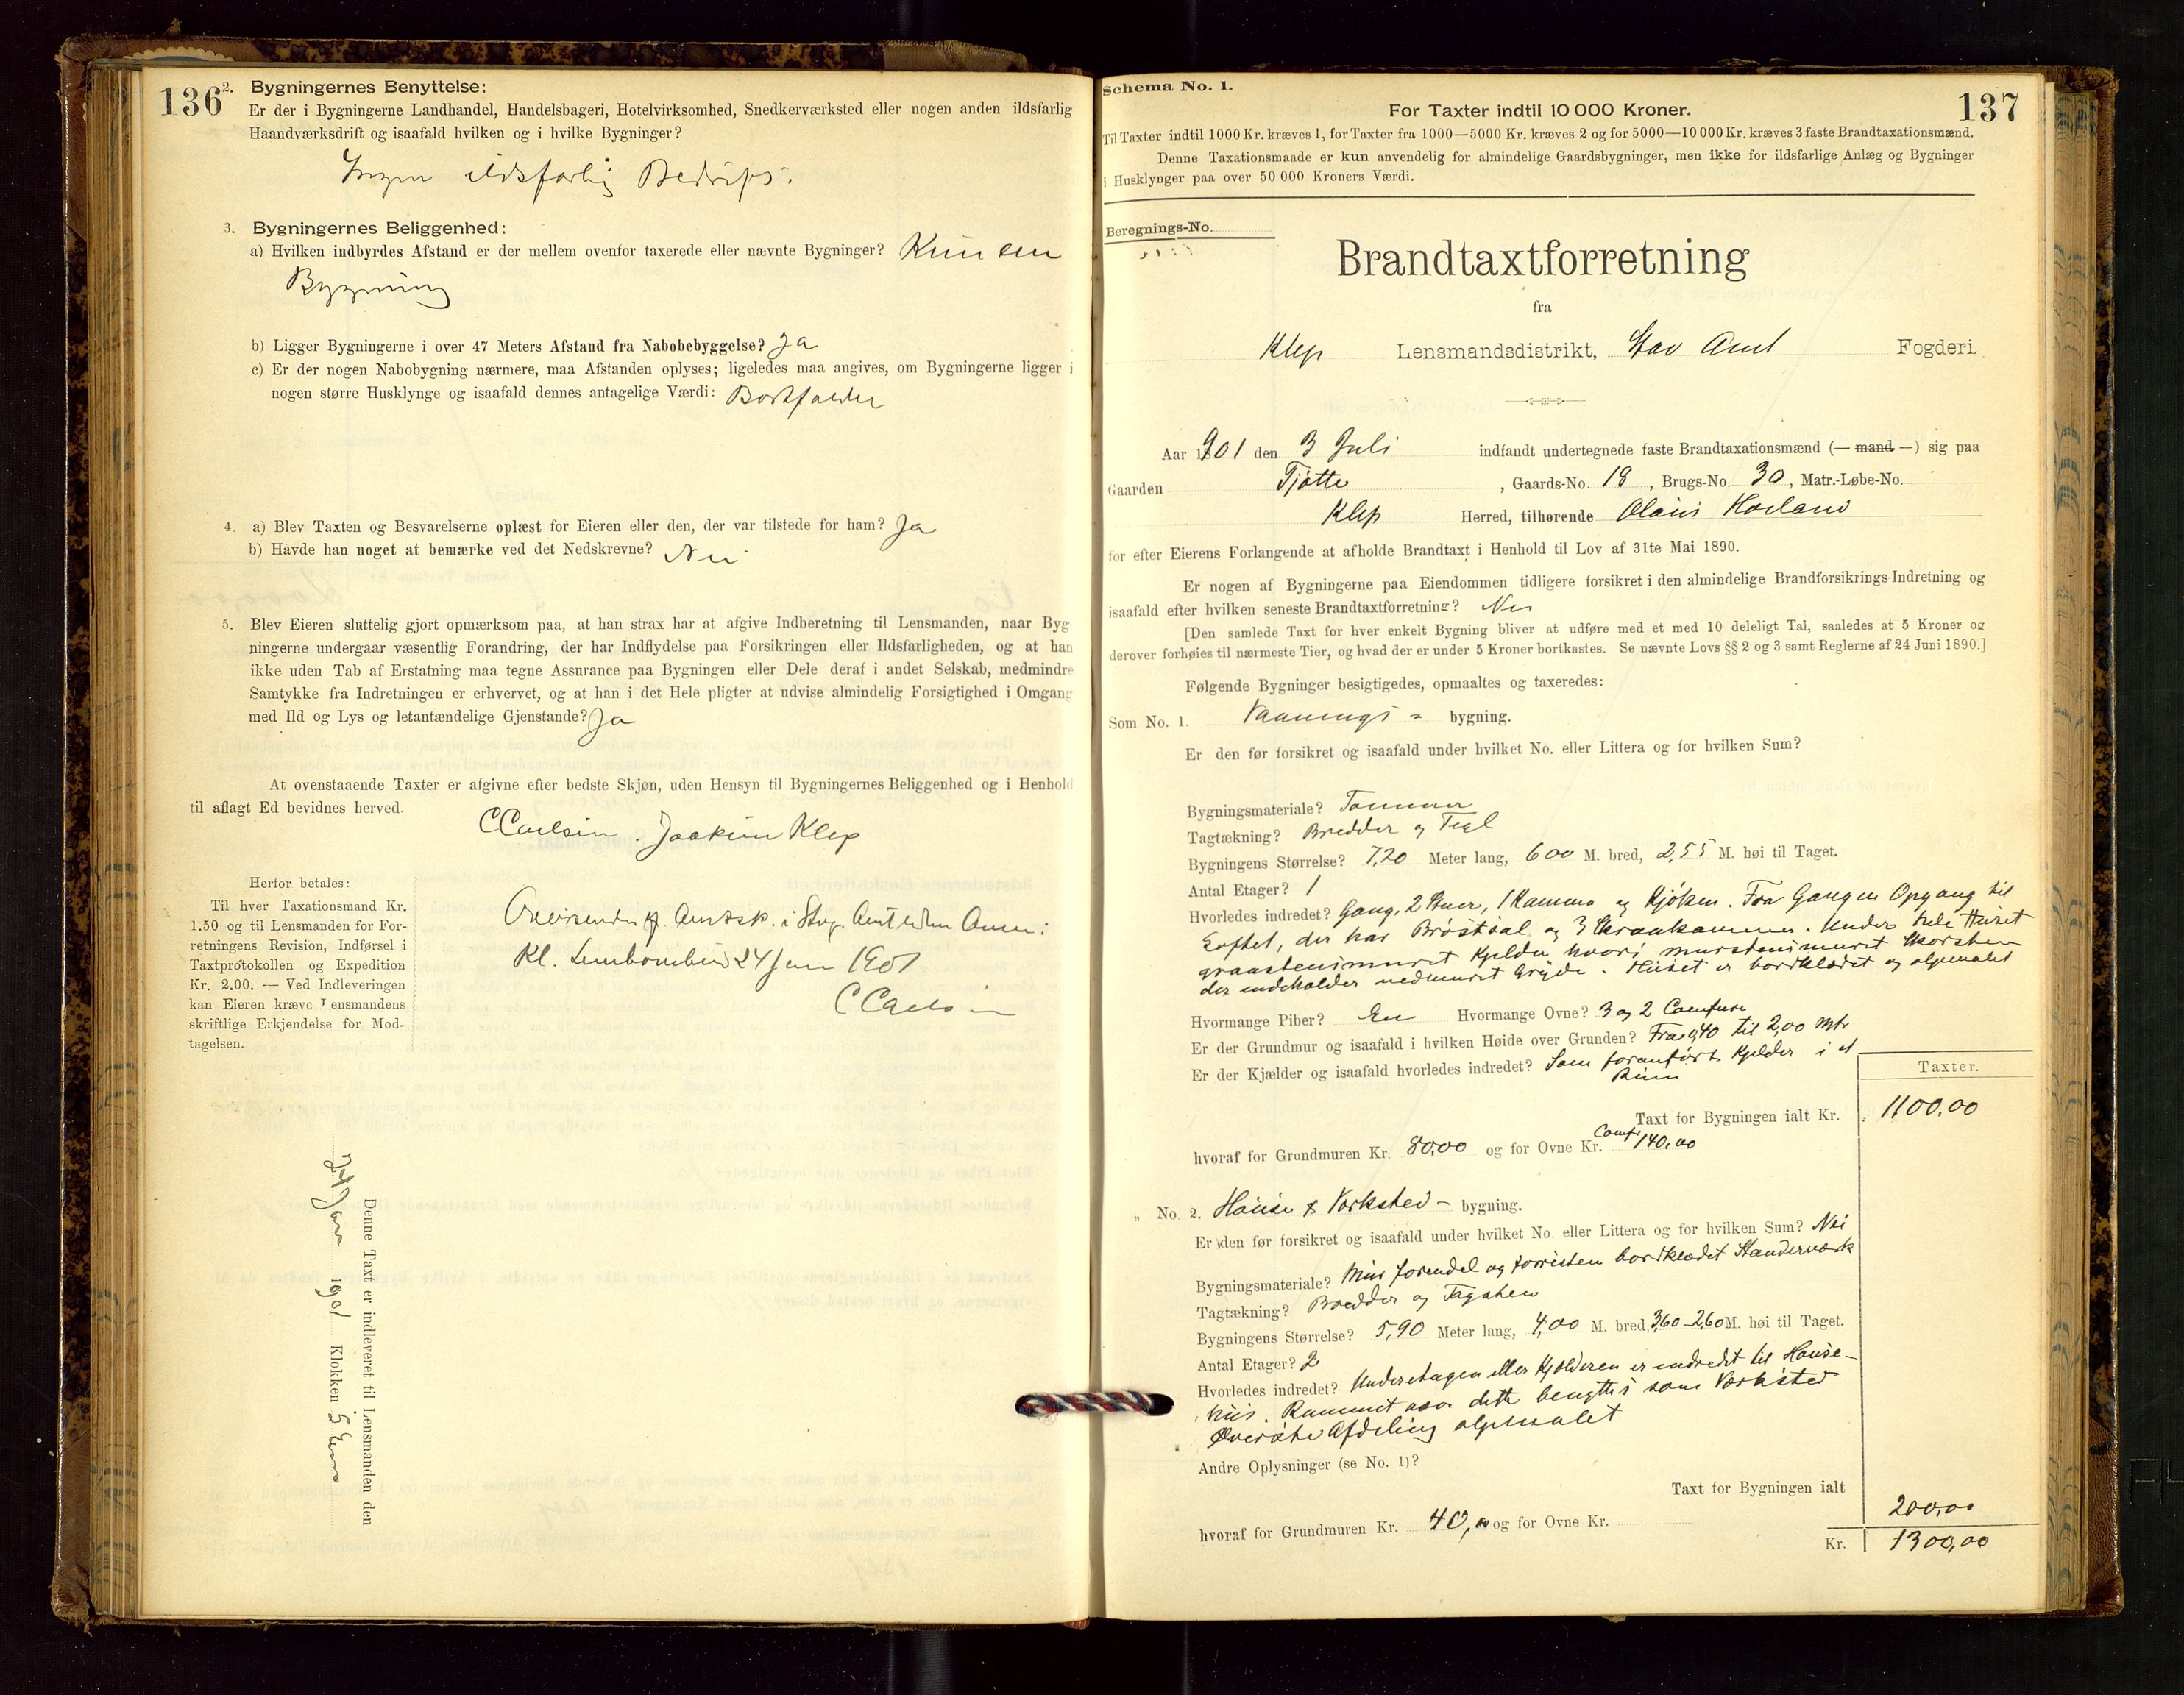 136
2. Bygningernes Benyttelse:
Er der i Bygningerne Landhandel, Handelsbageri, Hotelvirksomhed, Snedkerværksted eller nogen anden ildsfarlig
Haandværksdrift og isaafald hvilken og i hvilke Bygninger?
Ingen ildsfarlig Bedrift.
3. Bygningernes Beliggenhed:
a) Hvilken indbyrdes Afstand er der mellem ovenfor taxerede eller nævnte Bygninger? Kun en
Bygning
b) Ligger Bygningerne i over 47 Meters Afstand fra Nabobebyggelse? Ja
c) Er der nogen Nabobygning nærmere, maa Afstanden oplyses; ligeledes maa angives, om Bygningerne ligger i
nogen større Husklynge og isaafald dennes antagelige Værdi: Bortfalder
4. a) Blev Taxten og Besvarelserne oplæst for Eieren eller den, der var tilstede for ham? Ja
b) Havde han noget at bemærke ved det Nedskrevne? Nei
5. Blev Eieren sluttelig gjort opmærksom paa, at han strax har at afgive Indberetning til Lensmanden, naar Byg
ningerne undergaar væsentlig Forandring, der har Indflydelse paa Forsikringen eller Ildsfarligheden, og at han
ikke uden Tab af Erstatning maa tegne Assurance paa Bygningen eller Dele deraf i andet Selskab, medmindre
Samtykke fra Indretningen er erhvervet, og at han i det Hele pligter at udvise almindelig Forsigtighed i Omgang
med Ild og Lys og letantændelige Gjenstande? Ja
At ovenstaaende Taxter er afgivne efter bedste Skjøn, uden Hensyn til Bygningernes Beliggenhed og i Henhold
til aflagt Ed bevidnes herved.
CCarlsen. Joakim Klep
Herfor betales:
Til hver Taxationsmand Kr.
1.50 og til Lensmanden for For-
retningens Revision, Indførsel i
Taxtprotokollen og Expedition
Kr. 2.00. — Ved Indleveringen
kan Eieren kræve Lensmandens
skriftlige Erkjendelse for Mod-
tagelsen.
i Stav. Amt
Kl. 24 Juni 1901
C Carlsen
Denne Taxt er indleveret til Lensmanden den
24 Juni 1901 Klokken 5 Em
Schema No. 1.
137
For Taxter indtil 10 000 Kroner.
Til Taxter indtil 1000 Kr. kræves 1, for Taxter fra 1000—5000 Kr. kræves 2 og for 5000—10 000 Kr. kræves 3 faste Brandtaxationsmænd.
Denne Taxationsmaade er kun anvendelig for almindelige Gaardsbygninger, men ikke for ildsfarlige Anlæg og Bygninger
i Husklynger paa over 50 000 Kroners Værdi.
Beregnings-No.
Brandtaxtforretning
fra
Klep Lensmandsdistrikt, Stav Amt Fogderi
Aar 1901 den 3 Juli indfandt undertegnede faste Brandtaxationsmænd (— mand —) sig paa
Gaarden Tjøtte, Gaards-No. 18, Brugs-No. 30, Matr.-Løbe-No.
Klep Herred, tilhørende Olaus Haaland
for efter Eierens Forlangende at afholde Brandtaxt i Henhold til Lov af 31te Mai 1890.
Er nogen af Bygningerne paa Eiendommen tidligere forsikret i den almindelige Brandforsikrings-Indretning og
isaafald efter hvilken seneste Brandtaxtforretning? Nei
[Den samlede Taxt for hver enkelt Bygning bliver at udføre med et med 10 deleligt Tal, saaledes at 5 Kroner og
derover forhøies til nærmeste Tier, og hvad der er under 5 Kroner bortkastes. Se nævnte Lovs §§ 2 og 3 samt Reglerne af 24 Juni 1890.]
Følgende Bygninger besigtigedes, opmaaltes og taxeredes:
Som No. 1. Vaanings- bygning.
Er den før forsikret og isaafald under hvilket No. eller Littera og for hvilken Sum?
Bygningsmateriale? Tømmer
Tagtækning? Bredder og Tegl
Bygningens Størrelse? 7,20 Meter lang, 600 M. bred, 2,55 M. høi til Taget.
Antal Etager? 1
Hvorledes indredet? Gang, 2 Stuer, 1 Kammer og Kjøkken. Fra Gangen Opgang til
Loftet, der har Brøstsal og 3 Skraakammer. Under hele Huset
graastensmuret Kjelder, hvori murstensmuret Skorsten
der indeholder nedmuret Gryde. Huset er bordklædet og oljemalet
Hvormange Piber? En Hvormange Ovne? 3 og 2 Comfurer
Er der Grundmur og isaafald i hvilken Høide over Grunden? Fra 0,40 til 2,00 Mtr
Er der Kjælder og isaafald hvorledes indredet? Som foranført Kjelder i et
Rum
Taxter.
Taxt for Bygningen ialt Kr. 1100,00
hvoraf for Grundmuren Kr. 80,00 og for Ovne Comf. Kr. 140,00
„ No. 2. Høuse & Værksted- bygning.
Er den før forsikret og isaafald under hvilket No. eller Littera og for hvilken Sum? Nei
Bygningsmateriale? Mur forendel og forresten bordklædet Standerværk
Tagtækning? Bredder og Tagsten
Bygningens Størrelse? 5,90 Meter lang, 4,00 M. bred, 3,60-2,60 M. høi til Taget.
Antal Etager? 2
Hvorledes indredet? Underetagen eller Kjelderen er indredet til Høuse-
hus. Rummet over dette benyttes som Værksted
Øverste Afdeling oljemalet
Andre Oplysninger (se No. 1)?
Taxt for Bygningen ialt 200,00
hvoraf for Grundmuren Kr. 40,00 og for Ovne Kr.
Kr. 1300,00